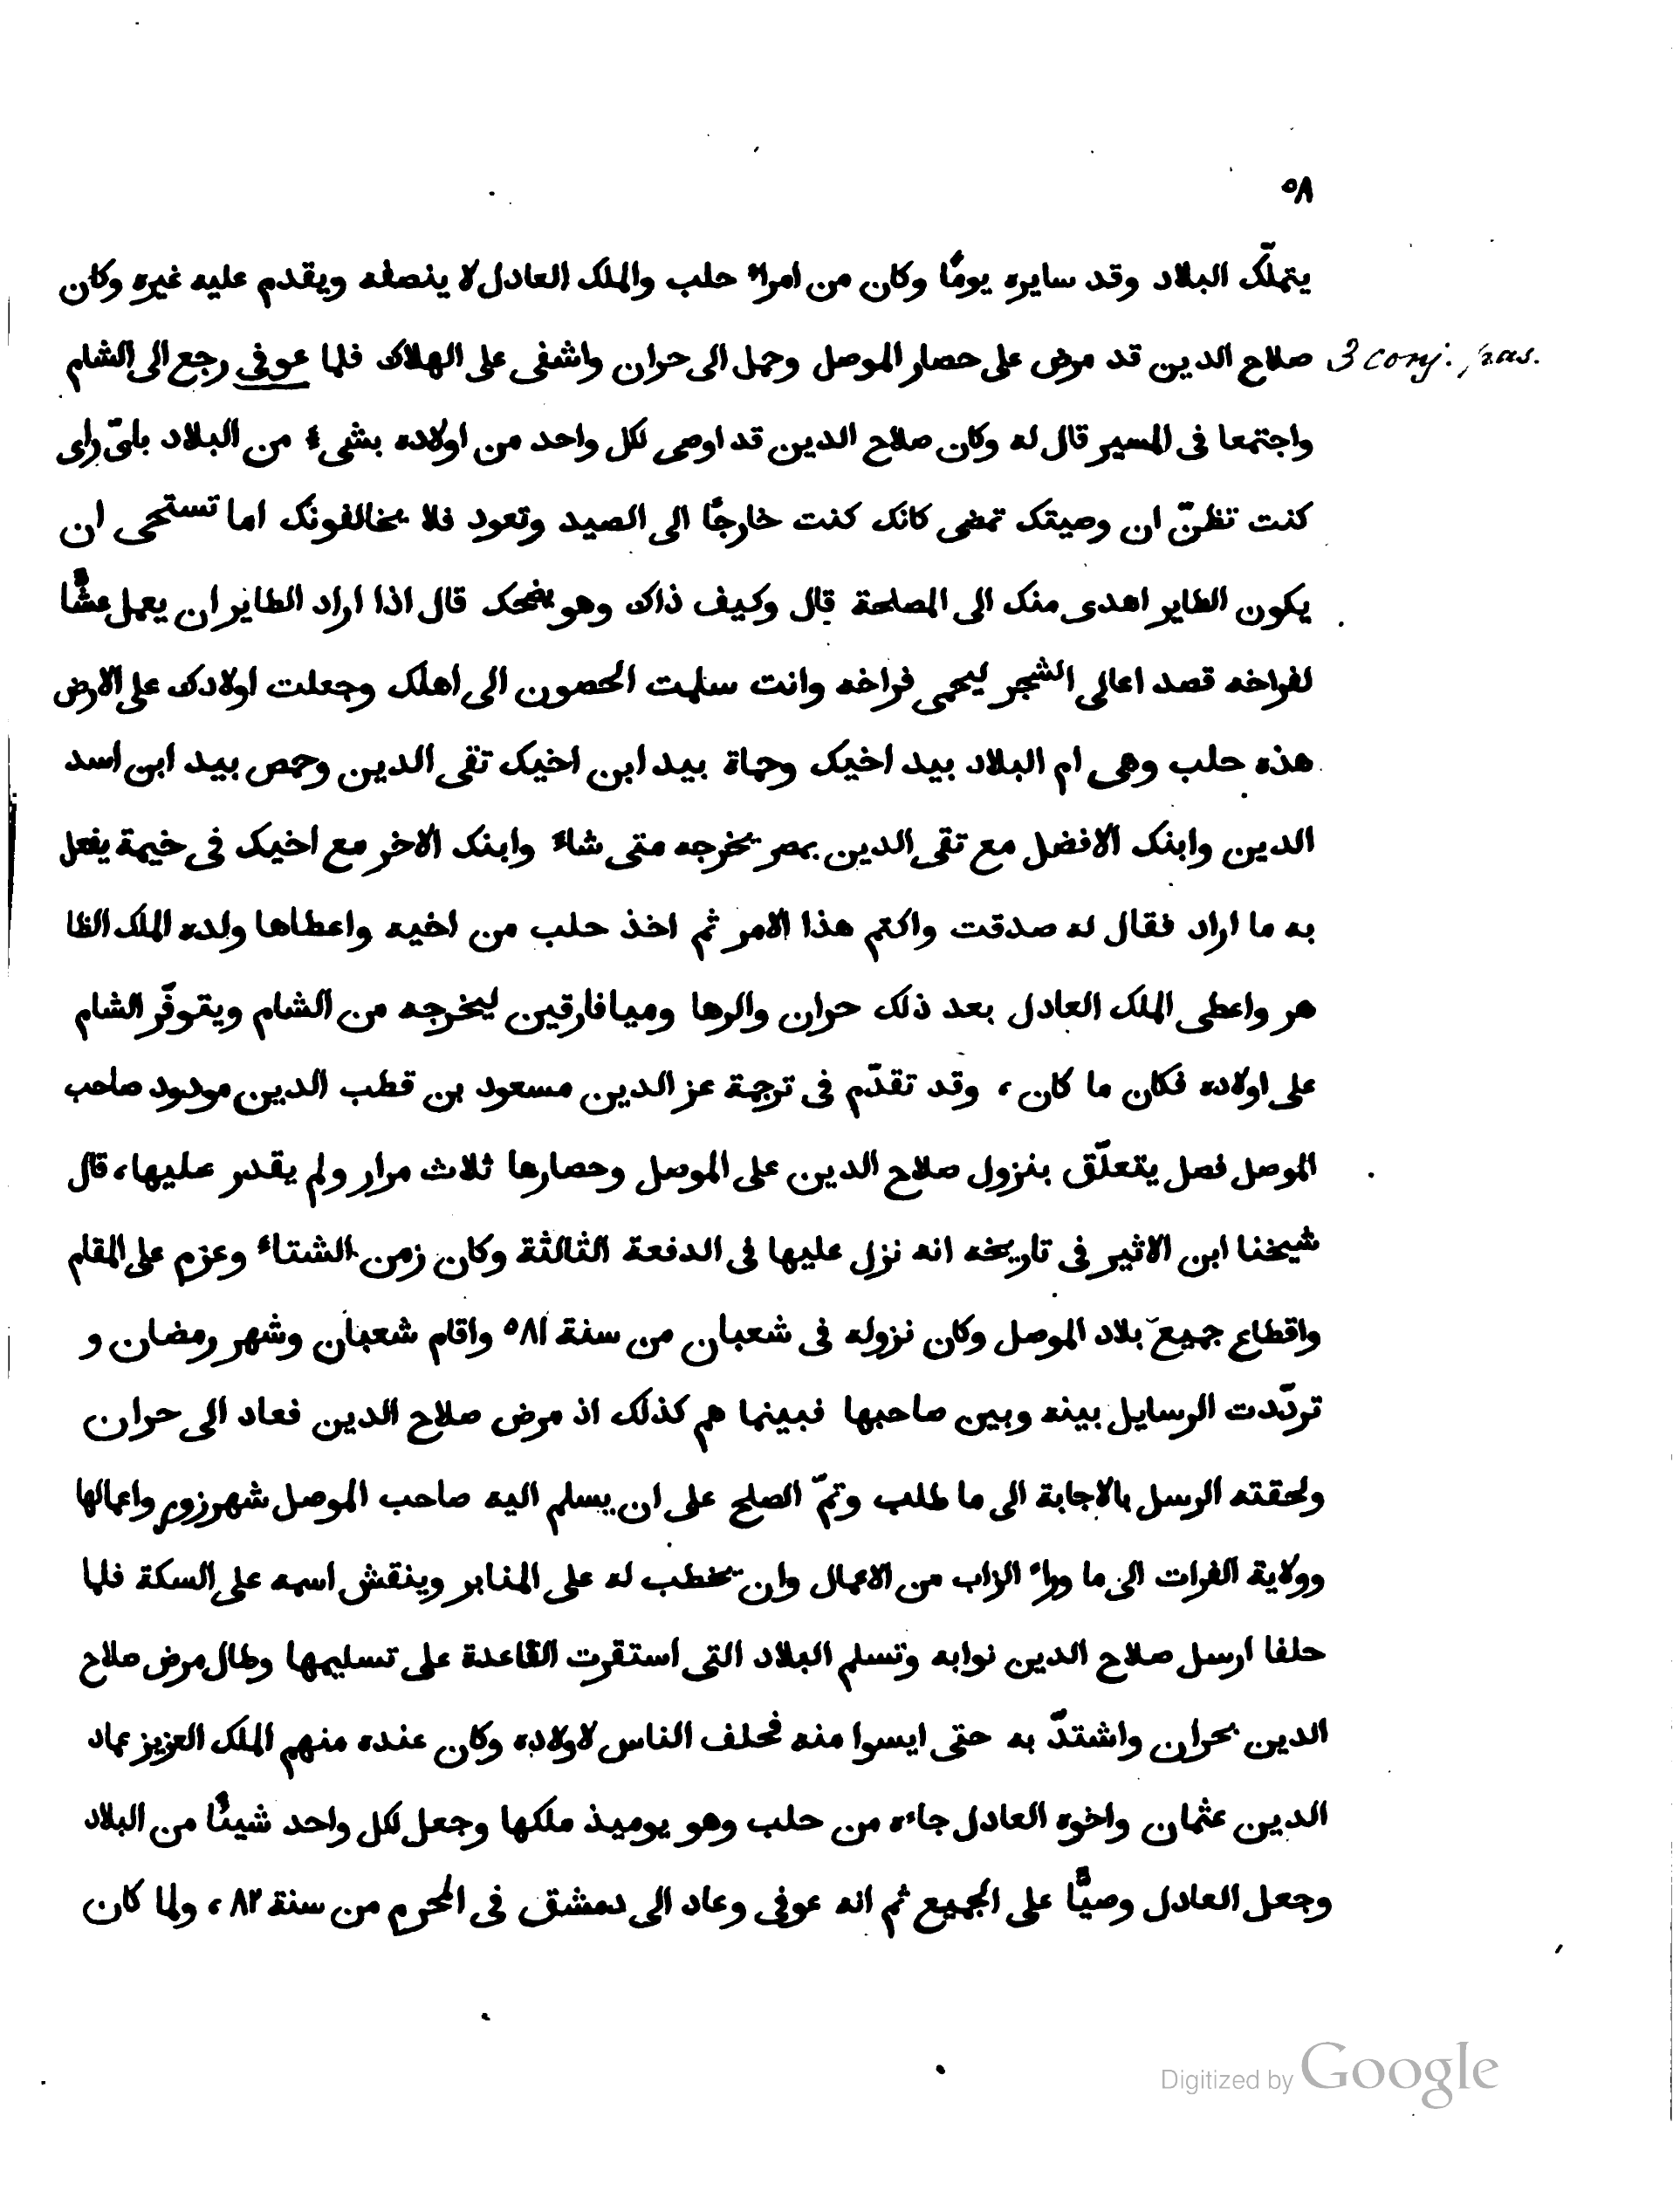 ٥٨
يتملّك البلاد وقد سايره يومًا وكان من امراء حلب والملك العادل لا ينصفه ويقدم عليه غيره وكان
صلاح الدين قد مرض على حصار الموصل وحمل الى حران واشفى على الهلاك فلما عوفى رجع الى الشام 3 conj. pas.
واجتمعا فى المسير قال له وكان صلاح الدين قد اوصى لكل واحد من اولاده بشىء من البلاد باىّ راى
كنت تظنّ ان وصيتك تمضى كانك كنت خارجًا الى الصيد وتعود فلا يخالفونك اما تستحى ان
يكون الطاير اهدى منك الى المصلحة قال وكيف ذاك وهو يضحك قال اذا اراد الطاير ان يعمل عشًّا
لفراخه قصد اعالى الشجر ليحمى فراخه وانت سلمت الحصون الى اهلك وجعلت اولادك على الارض
هذه حلب وهى ام البلاد بيد اخيك وحماة بيد ابن اخيك تقى الدين وحمص بيد ابن اسد
الدين وابنك الافضل مع تقى الدين بمصر يخرجه متى شاء وابنك الاخر مع اخيك فى خيمة يفعل
به ما اراد فقال له صدقت واكتم هذا الامر ثم اخذ حلب من اخيه واعطاها ولده الملك الظا
هر واعطى الملك العادل بعد ذلك حران والرها وميافارقين ليخرجه من الشام ويتوفّر الشام
على اولاده فكان ما كان، وقد تقدّم فى ترجمة عز الدين مسعود بن قطب الدين مودود صاحب
الموصل فصل يتعلّق بنزول صلاح الدين على الموصل وحصارها ثلاث مرار ولم يقدر عليها، قال
شيخنا ابن الاثير فى تاريخه انه نزل عليها فى الدفعة الثالثة وكان زمن الشتاء وعزم على المقام
واقطاع جميع بلاد الموصل وكان نزوله فى شعبان من سنة ٥٨١ واقام شعبان وشهر رمضان و
تردّدت الرسايل بينه وبين صاحبها فبينما هم كذلك اذ مرض صلاح الدين فعاد الى حران
ولحقته الرسل بالاجابة الى ما طلب وتمّ الصلح على ان يسلم اليه صاحب الموصل شهرزور واعمالها
وولاية الفرات الى ما وراء الزاب من الاعمال وان يخطب له على المنابر وينقش اسمه على السكة فلما
حلفا ارسل صلاح الدين نوابه وتسلم البلاد التى استقرت القاعدة على تسليمها وطال مرض صلاح
الدين بحران واشتدّ به حتى ايسوا منه فحلف الناس لاولاده وكان عنده منهم الملك العزيز عماد
الدين عثمان واخوه العادل جاءه من حلب وهو يوميذ ملكها وجعل لكل واحد شيئًا من البلاد
وجعل العادل وصيًّا على الجميع ثم انه عوفى وعاد الى دمشق فى المحرم من سنة ٨٢، ولما كان
Digitized by Google